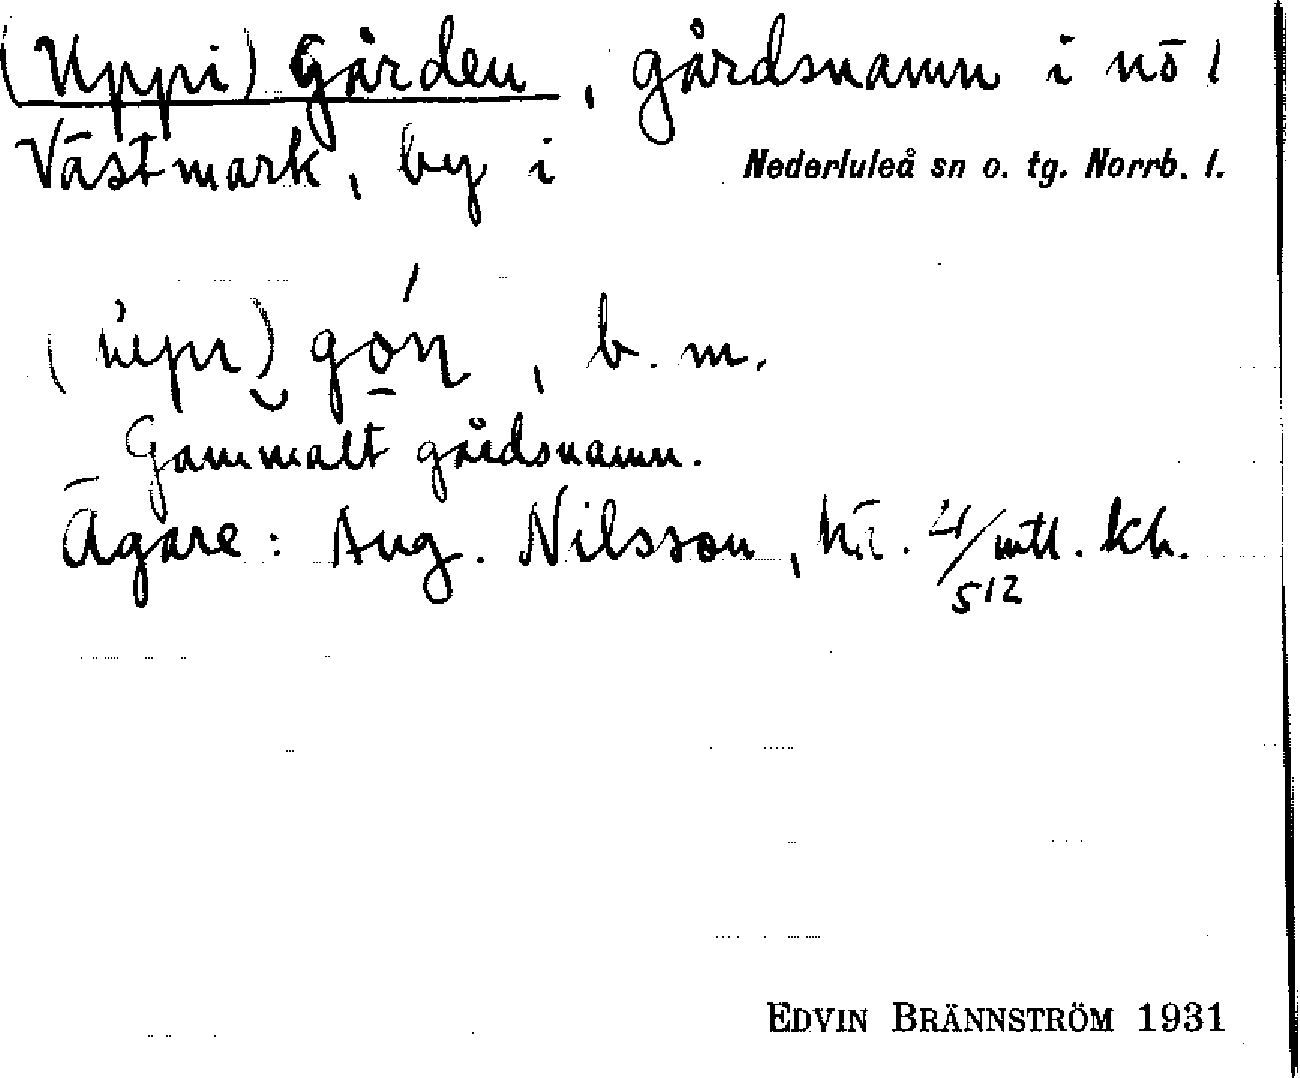 (Uppi) Gården, gårdsnamn i nö 1
Västmark, by i Nederluleå sn o. tg. Norrb. l.
gón, b. m.
Gammalt gårdsnamn.
Ägare: Aug. Nilsson, 21/512 mtl. kh.
EDVIN BRÄNNSTRÖM 1931